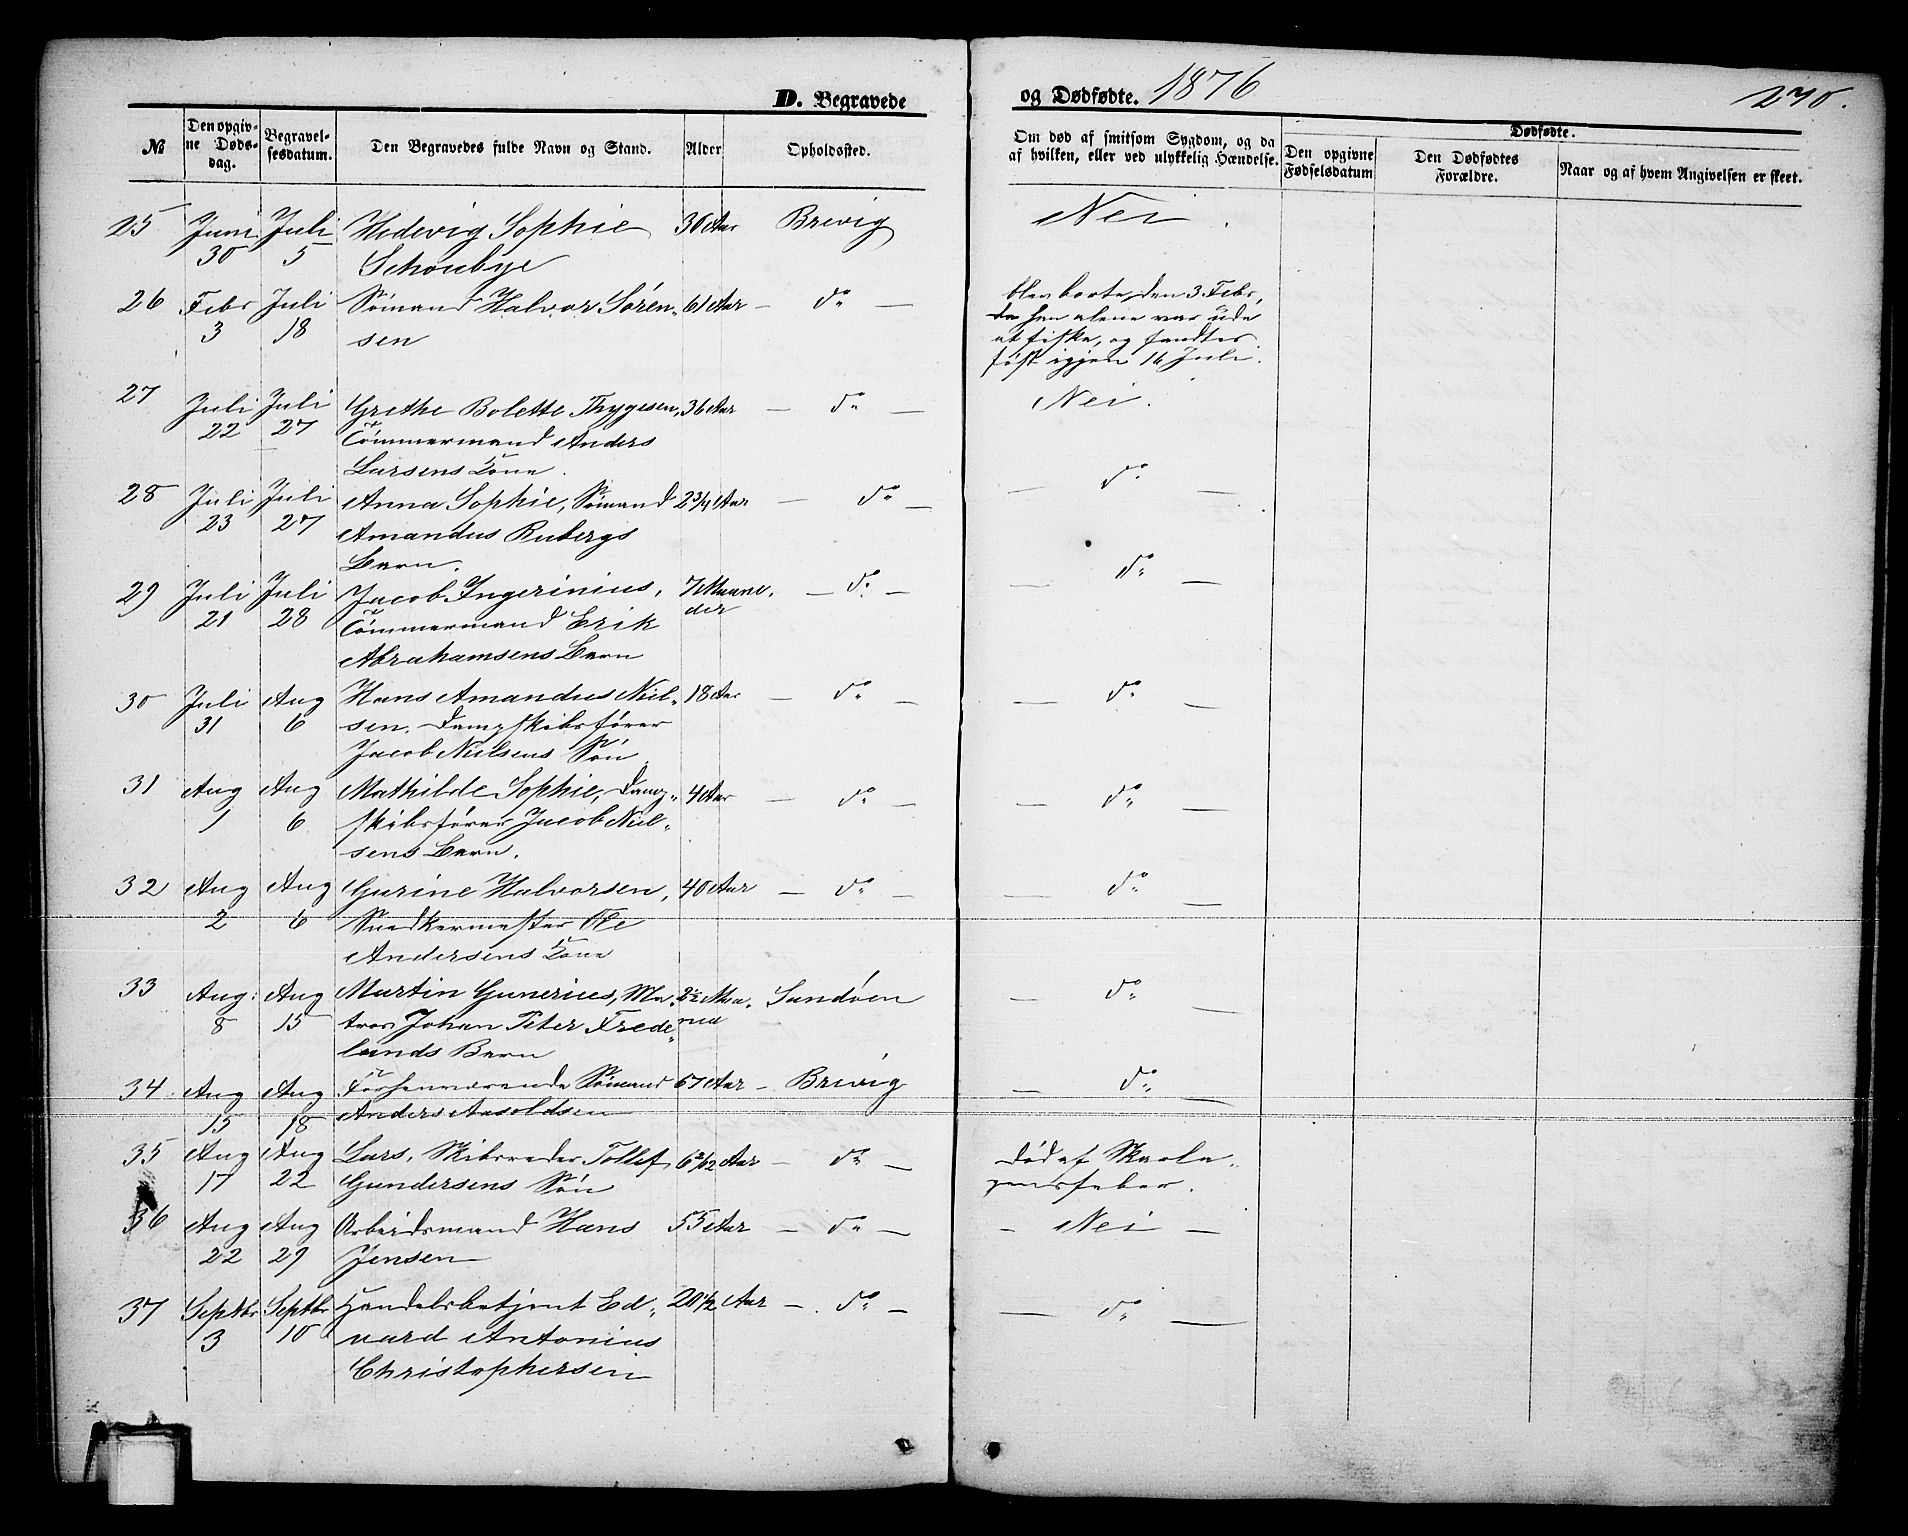 D. Begravede og Dødfødte. 1876 270.
№
Den opgiv-
ne Døds-
dag.
Begravel-
sesdatum.
Den Begravedes fulde Navn og Stand.
Alder
Opholdssted.
Om død af smitsom Sygdom, og da
af hvilken, eller ved ulykkelig Hændelse.
Dødfødte.
Den opgivne
Fødselsdatum
Den Dødfødtes
Forældre.
Naar og af hvem Angivelsen er skeet.
25 Juni Juli Hedevig Sophie 30 Aar Brevig Nei.
30 5 Schoubye
26 Febr Juli Sømand Halvor Sören- 61 Aar — do — blev borte den 3 Febr,
3 18 sen
da han alene var ude
at fiske, og fandtes
først igjen 16 Juli.
27 Juli Juli Grethe Bolette Thygesen, 36 Aar — do — Nei.
22 27 Tömmermand Anders
Larsens Kone.
28 Juli Juli Anna Sophie, Sømand 2 3/4 Aar — do — — do —
23 27 Amandus Rubergs
Barn.
29 Juli Juli Jacob Ingerinius, 7 Maane- — do — — do —
21 28 Tömmermand Erik der
Abrahamsens Barn
30 Juli Aug Hans Amandus Niel- 18 Aar — do — — do —
31 6 sen. Dampskibsfører
Jacob Nielsens Søn
31 Aug Aug Mathilde Sophie, Damp- 4 Aar — do — — do —
1 6 skibsfører Jacob Niel-
sens Barn.
32 Aug Aug Gurine Halvorsen, 40 Aar — do — — do —
2 6 Snedkermester Ole
Andersens Kone
33 Aug: Aug Martin Gunerius, Ma- 2 1/2 Maa- Sandöen — do —
8 15 tros Johan Peter Frede- ned
lunds Barn
34 Aug Aug Forhenværende Sømand 67 Aar — Brevig — do —
15 18 Anders Aasoldsen
35 Aug Aug Lars, Skibsreder Tollef 6 2/12 Aar — do — Död af Skarla-
17 22 Gundersens Søn gensfeber.
36 Aug Aug Arbeidsmand Hans 55 Aar — do — — Nei —
22 29 Jensen
37 Septbr Septbr Handelsbetjent Ed- 20 1/2 Aar — do — — do —
3 10 vard Antonius
Christophersen